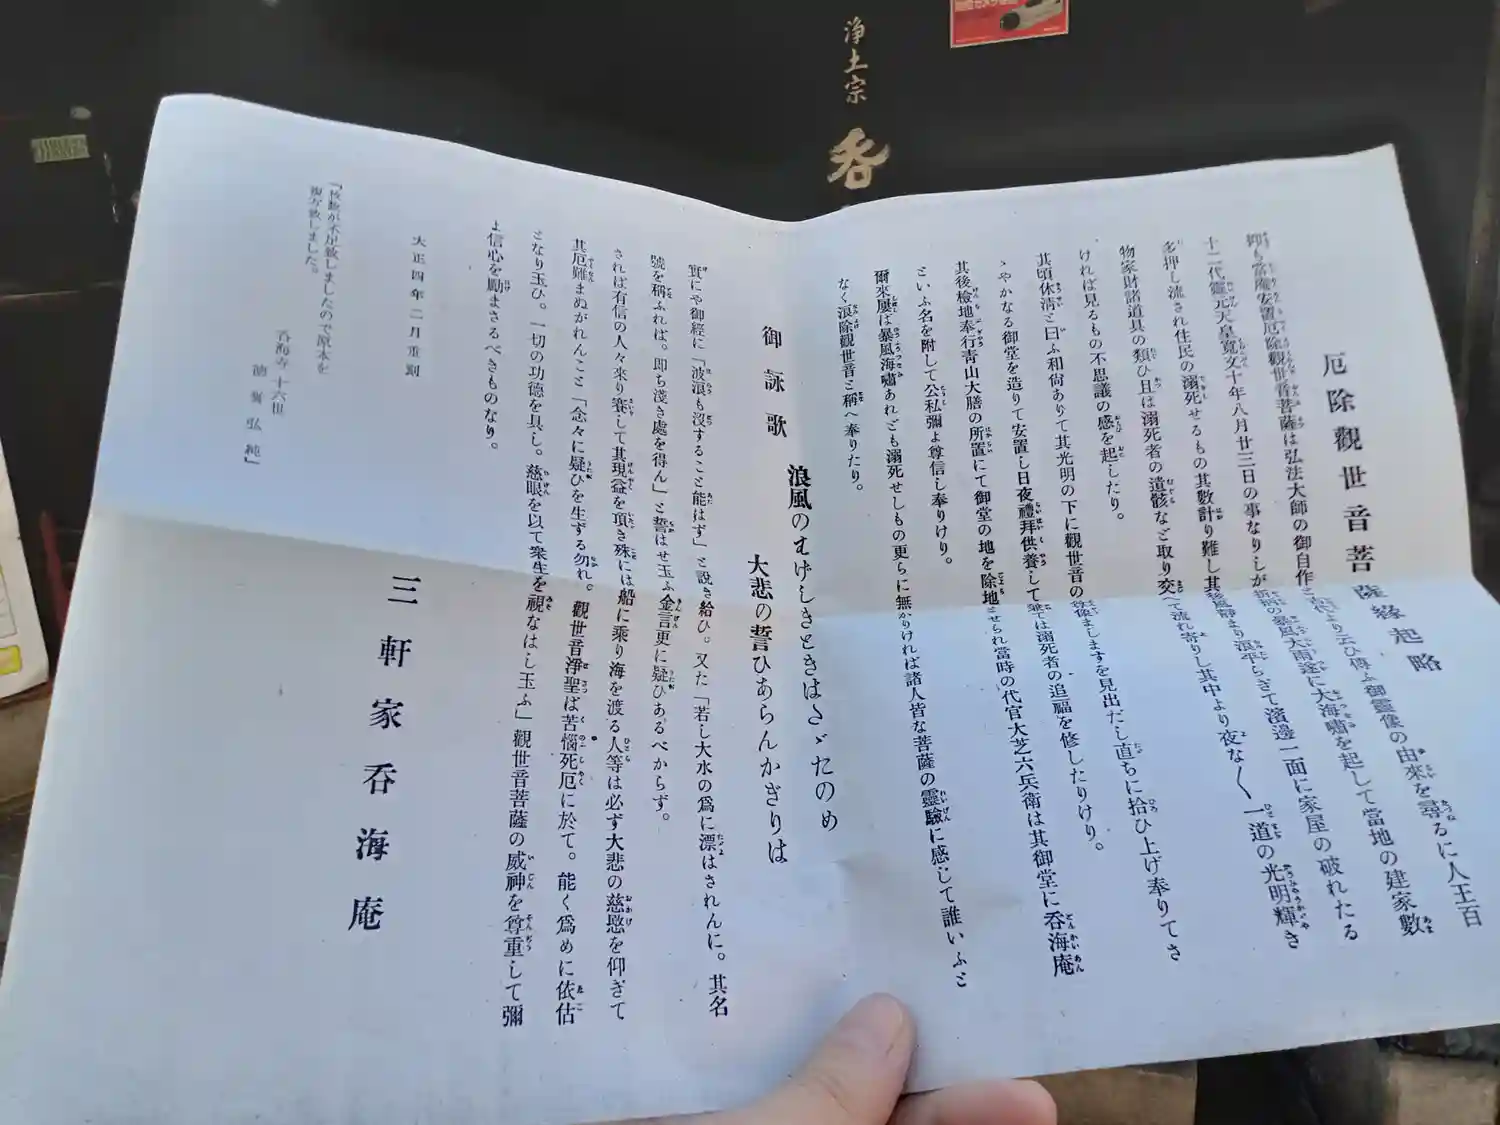 浄土宗
呑
厄除觀世音菩薩緣起略
抑も當庵安置厄除觀世音菩薩は弘法大師の御自作と古より云ひ傳ふ御靈像の由來を尋るに人王百
十二代靈元天皇寬文十年八月廿三日の事なりしが の暴風大雨遂に大海嘯を起して當地の建家數
多押し流され住民の溺死せるもの其數計り難し其後風靜まり浪平らぎて濱邊一面に家屋の破れたる
物家財諸道具の類ひ且は溺死者の遺骸など取り交て流れ寄りし其中より夜な〱一道の光明輝き
ければ見るもの不思議の感を起したり。
其頃休淸と曰ふ和尙ありて其光明の下に觀世音の尊像ましますを見出だし直ちに拾ひ上げ奉りてさ
ゝやかなる御堂を造りて安置し日夜禮拜供養して兼ては溺死者の追福を修したりけり。
其後檢地奉行靑山大膳の所置にて御堂の地を除地せられ當時の代官大芝六兵衛は其御堂に呑海庵
といふ名を附して公私彌よ尊信し奉りけり。
爾來屢ば暴風海嘯あれども溺死せしもの更らに無かりければ諸人皆な菩薩の靈驗に感じて誰いふと
なく浪除觀世音と稱へ奉りたり。
御詠歌
浪風のはげしきときはたゞたのめ
大悲の誓ひあらんかぎりは
實にや御經に「波浪も沒すること能はず」と說き給ひ。又た「若し大水の爲に漂はされんに。其名
號を稱ふれば。卽ち淺き處を得ん」と誓はせ玉ふ金言更に疑ひあるべからず。
されば有信の人々來り賽して其現益を頂き殊には船に乘り海を渡る人等は必ず大悲の慈愍を仰ぎて
其厄難まぬがれんこと「念々に疑ひを生ずる勿れ。觀世音淨聖は苦惱死厄に於て。能く爲めに依估
となり玉ひ。一切の功德を具し。慈眼を以て衆生を視なはし玉ふ」觀世音菩薩の威神を尊重して彌
よ信心を勵まさるべきものなり。
大正四年二月重刻
三軒家呑海庵
「枚數が不足致しましたので原本を
複寫致しました。
呑海寺十六世
弘純」